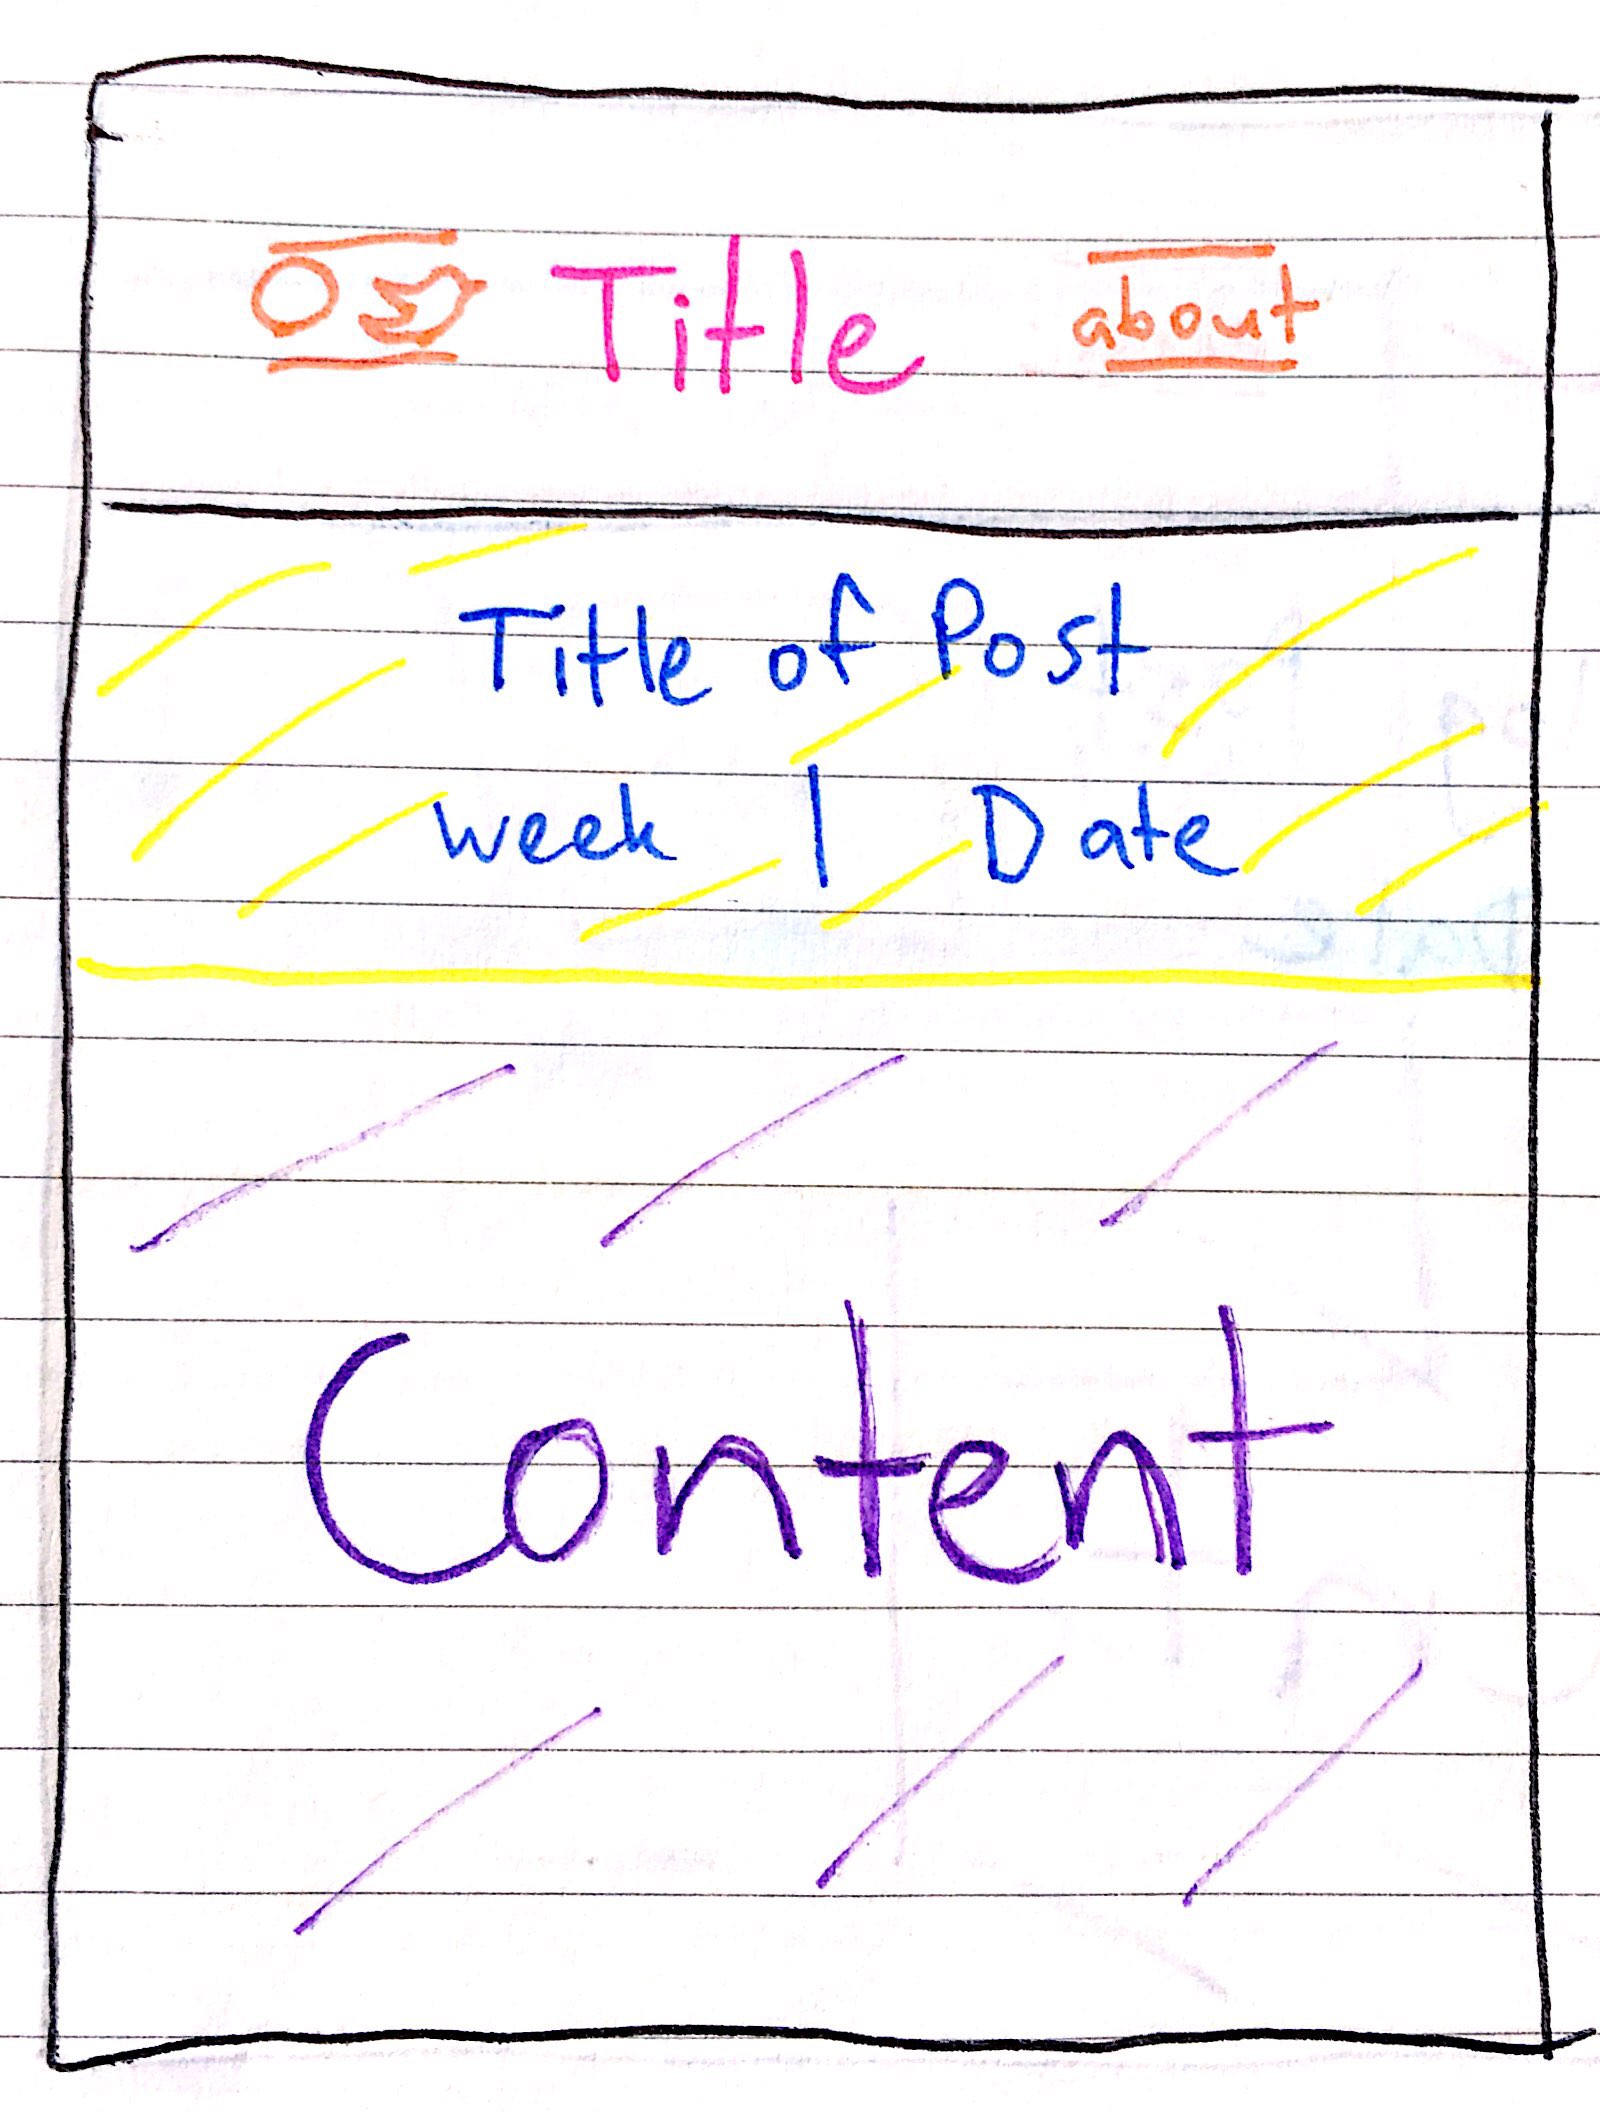 Title about
Title of Post
week | Date
Content